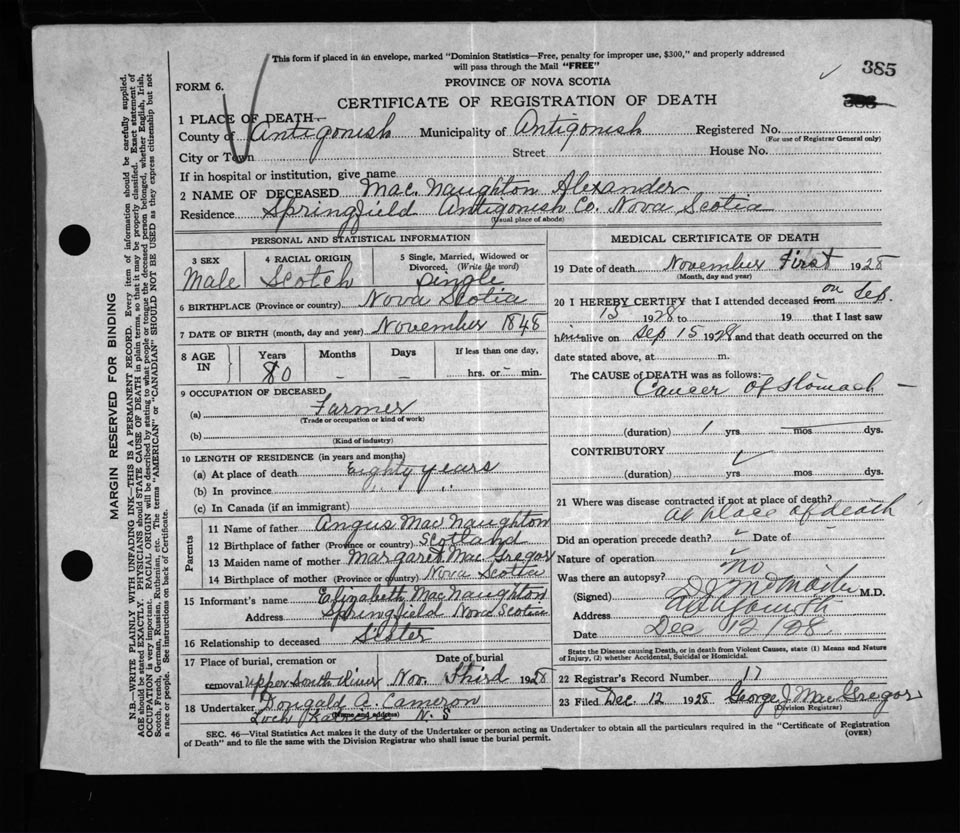 This form if placed in an envelope, marked "Dominion Statistics—Free, penalty for improper use, $300," and properly addressed
will pass through the Mail "FREE"
385
FORM 6.
PROVINCE OF NOVA SCOTIA
CERTIFICATE OF REGISTRATION OF DEATH
1 PLACE OF DEATH—
County of Antigonish Municipality of Antigonish Registered No.
(For use of Registrar General only)
City or Town Street House No.
If in hospital or institution, give name
2 NAME OF DECEASED Mac Naughton Alexander
Residence Springfield Antigonish Co. Nova Scotia
(Usual place of abode)
PERSONAL AND STATISTICAL INFORMATION
3 SEX
Male
4 RACIAL ORIGIN
Scotch
5 Single, Married, Widowed or
Divorced. (Write the word)
Single
6 BIRTHPLACE (Province or country) Nova Scotia
7 DATE OF BIRTH (month, day and year) November 1848
8 AGE IN
Years
80
Months
–
Days
If less than one day,
hrs. or – min.
9 OCCUPATION OF DECEASED
(a) Farmer
(Trade or occupation or kind of work)
(b)
(Kind of industry)
10 LENGTH OF RESIDENCE (in years and months)
(a) At place of death Eighty years
(b) In province " "
(c) In Canada (if an immigrant)
Parents
11 Name of father Angus Mac Naughton
12 Birthplace of father (Province or country) Scotland
13 Maiden name of mother Margaret Mac Gregor
14 Birthplace of mother (Province or country) Nova Scotia
15 Informant's name Elizabeth Mac Naughton
Address Springfield Nova Scotia
16 Relationship to deceased Sister
17 Place of burial, cremation or
removal Upper South River
Date of burial
Nov. Third 1928
18 Undertaker Dougald A. Cameron
Loch N. S
MEDICAL CERTIFICATE OF DEATH
19 Date of death November First 1928
(Month, day and year)
20 I HEREBY CERTIFY that I attended deceased from on Sep.
15 1928 to 19 that I last saw
him alive on Sep 15 1928 and that death occurred on the
date stated above, at m.
The CAUSE of DEATH was as follows:
Cancer of stomach –
(duration) 1 yrs mos dys.
CONTRIBUTORY
(duration) yrs. mos. dys.
21 Where was disease contracted if not at place of death?
at place of death
Did an operation precede death? Date of
Nature of operation
Was there an autopsy? no
(Signed) M.D.
Address Antigonish
Date Dec 12/28.
State the Disease causing Death, or in death from Violent Causes, state (1) Means and Nature
of Injury, (2) whether Accidental, Suicidal or Homicidal.
22 Registrar's Record Number 17
23 Filed Dec. 12 1928 George J. Mac Gregor
(Division Registrar)
SEC. 46—Vital Statistics Act makes it the duty of the Undertaker or person acting as Undertaker to obtain all the particulars required in the "Certificate of Registration
of Death" and to file the same with the Division Registrar who shall issue the burial permit.
(OVER)
MARGIN RESERVED FOR BINDING
N.B.—WRITE PLAINLY WITH UNFADING INK—THIS IS A PERMANENT RECORD. Every item of information should be carefully supplied.
AGE should be stated EXACTLY. PHYSICIANS should STATE CAUSE OF DEATH in plain terms, so that it may be properly classified. Exact statement of
OCCUPATION is very important. RACIAL ORIGIN will be described by stating to what people or tongue the deceased person belonged, whether English, Irish,
Scotch, French, German, Russian, Ruthenian, etc. The terms "AMERICAN" or "CANADIAN" SHOULD NOT BE USED as they express citizenship but not
a race or people. See instructions on back of Certificate.